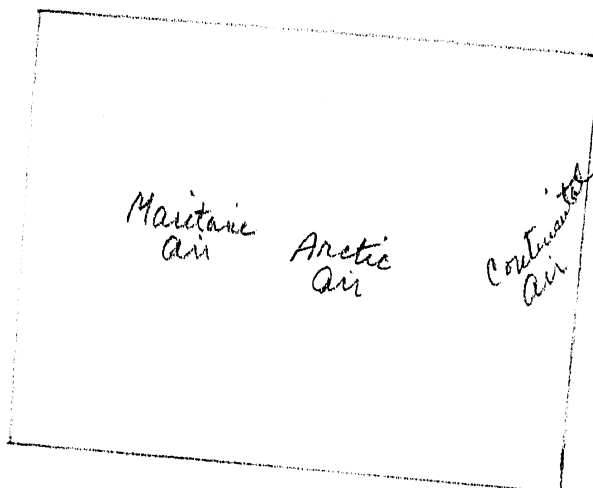 Maritime
Air
Arctic
Air
Continental
Air